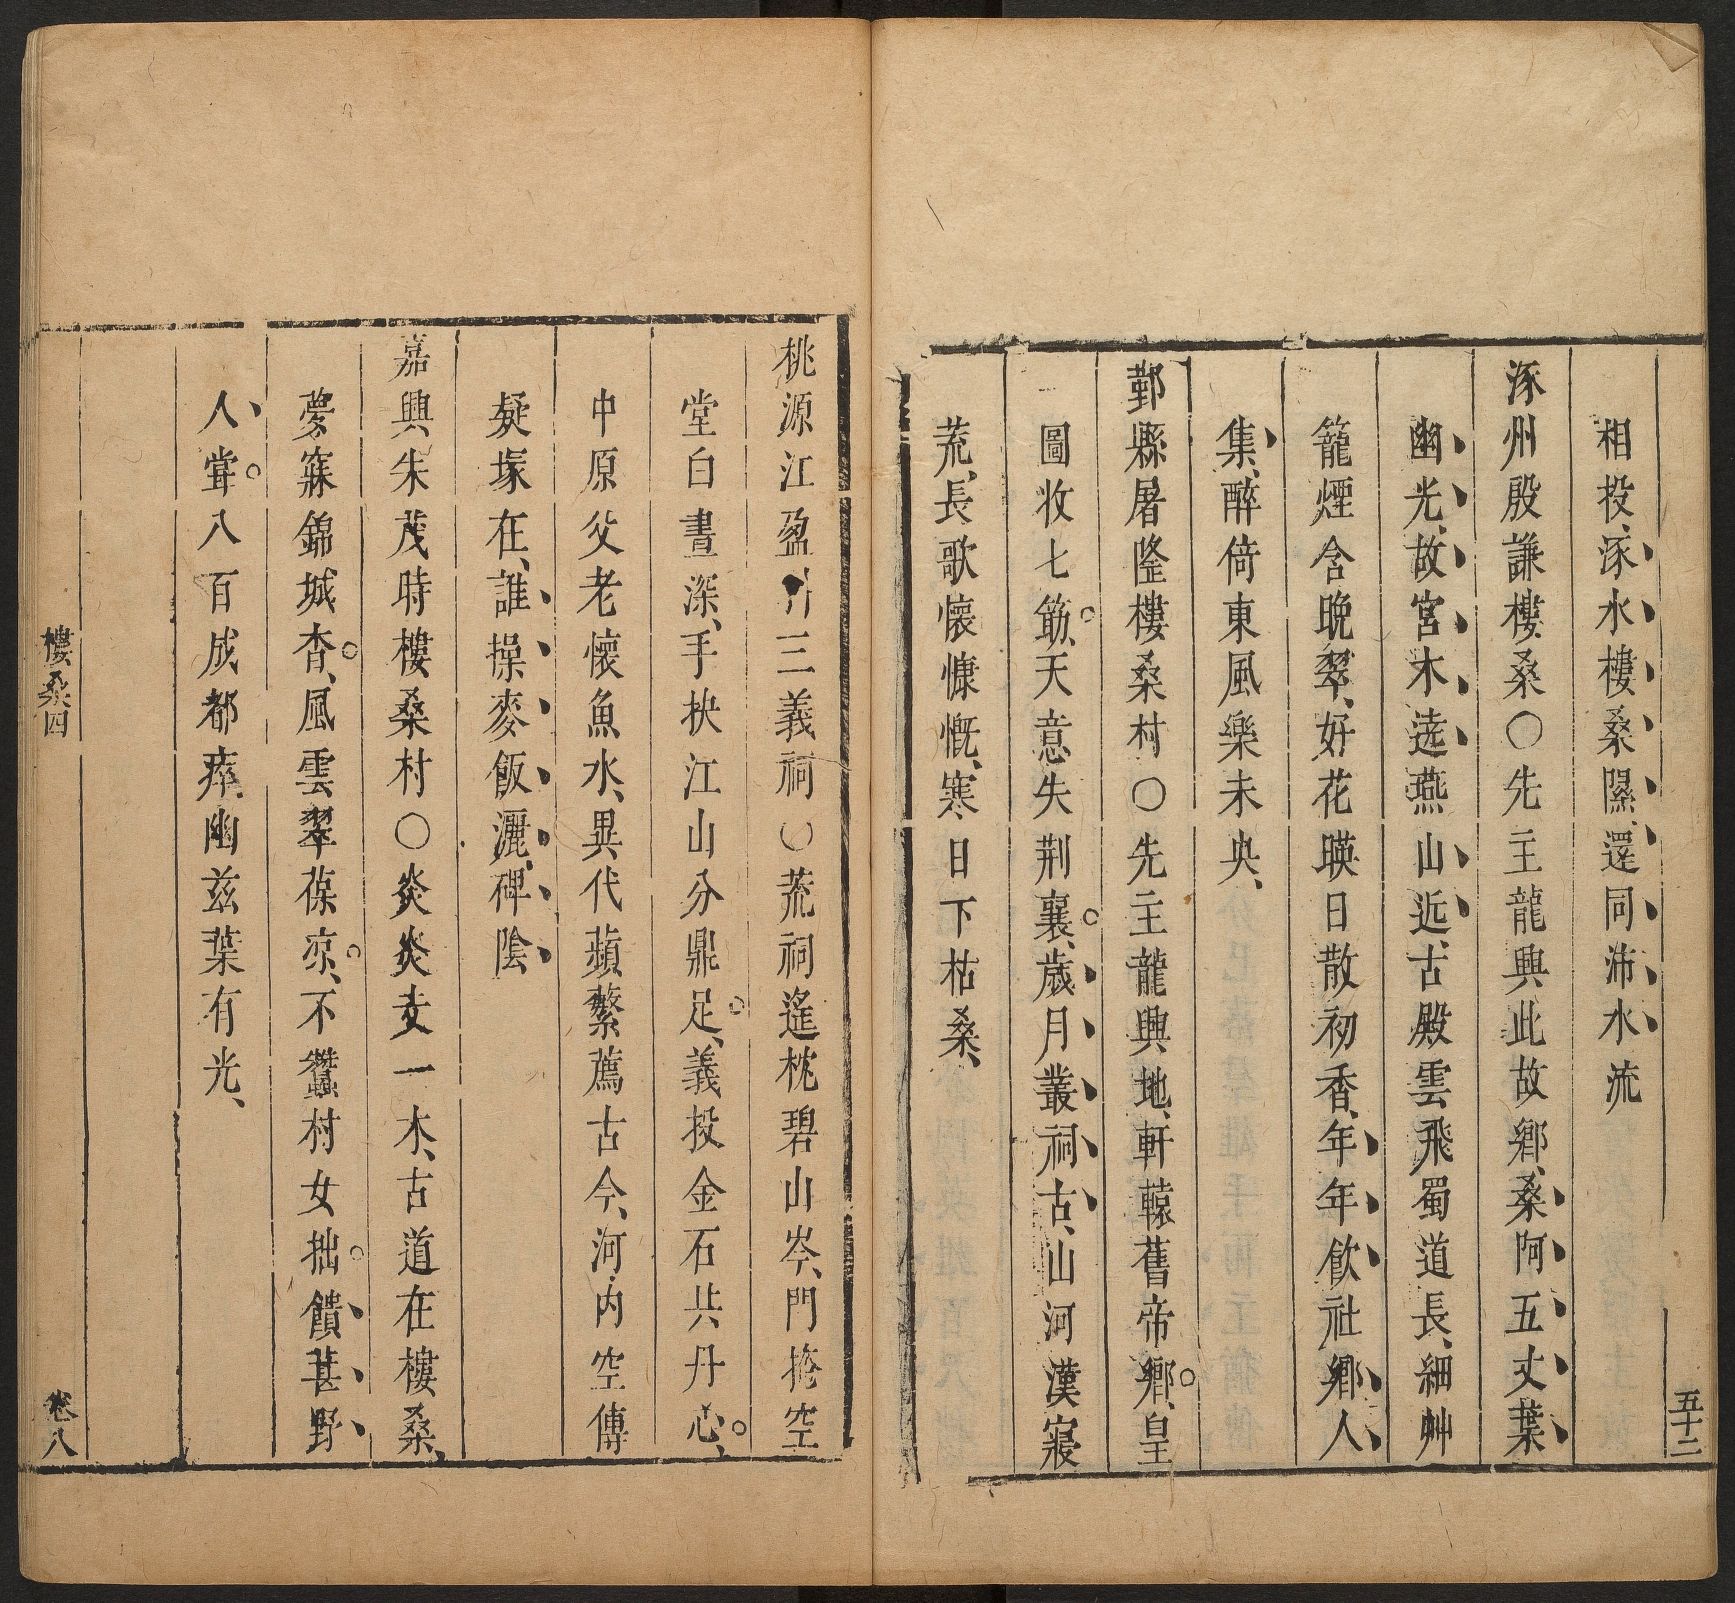 五十二
相投、涿水樓桑隰、還同沛水流
涿州殷謙樓桑○先主龍興此故鄉、桑阿五丈葉
幽光、故宮木遶燕山近、古殿雲飛蜀道長、細艸
籠煙含晚翠、好花暎日散初香、年年飲社鄉人
集、醉倚東風樂未央、
鄞縣屠隆樓桑村○先主龍興地、軒轅舊帝鄉、皇
圖收七筯、天意失荆襄、歲月叢祠古、山河漢寢
荒、長歌懷慷慨、寒日下枯桑、
桃源江盈科三義祠○荒祠遙枕碧山岑、門掩空
堂白晝深、手抉江山分鼎足、義投金石共丹心、
中原父老懷魚水、異代蘋蘩薦古今、河内空傳
疑塚在、誰操麥飯灑碑陰
嘉興朱茂時樓桑村○炎炎支一木、古道在樓桑、
夢寐錦城杳、風雲翠葆凉、不蠶村女拙饋葚野
人甞八百成都瘁、幽兹葉有光、
樓桑四
卷八